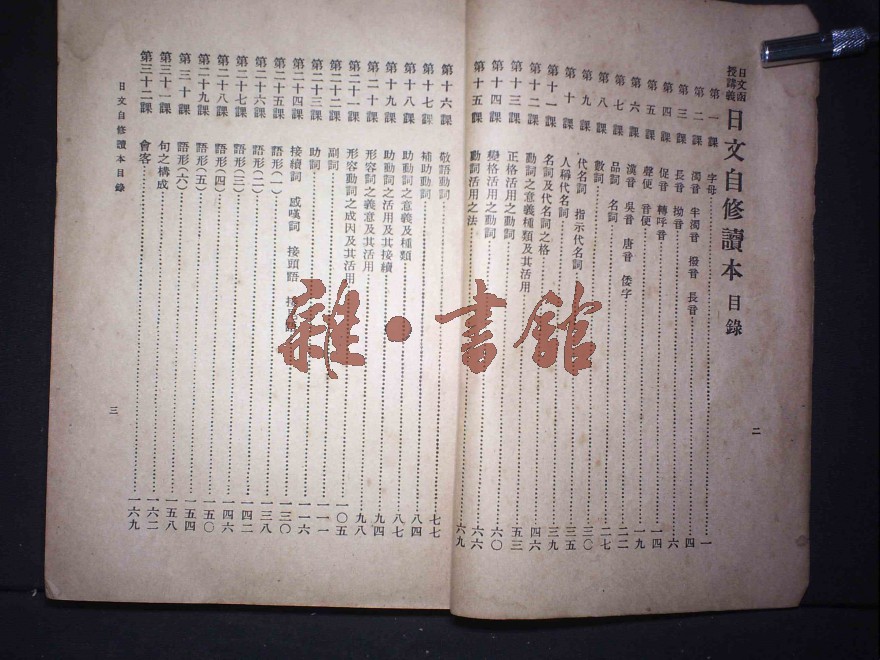 日文函授講義 日文自修讀本 目錄
第一課 字母 一
第二課 濁音 半濁音 撥音 長音 四
第三課 長音 拗音 六
第四課 促音 轉呼音 一四
第五課 聲便 音便 一九
第六課 漢音 吳音 唐音 倭字 二二
第七課 品詞 名詞 二七
第八課 數詞 三〇
第九課 代名詞 指示代名詞 三五
第十課 人稱代名詞 三九
第十一課 名詞及代名詞之格 四六
第十二課 動詞之意義種類及其活用 五三
第十三課 正格活用之動詞 六〇
第十四課 變格活用之動詞 六六
第十五課 動詞活用之法 六九
二
第十六課 敬語動詞 七七
第十七課 補助動詞 八四
第十八課 助動詞之意義及種類 八七
第十九課 助動詞之活用及其接續 九四
第二十課 形容詞之義意及其活用 九八
第二十一課 形容動詞之成因及其活用 一〇五
第二十二課 副詞 一一一
第二十三課 助詞 一一六
第二十四課 接續詞 感嘆詞 接頭語 一三〇
第二十五課 語形(一) 一三八
第二十六課 語形(二) 一四二
第二十七課 語形(三) 一四六
第二十八課 語形(四) 一五〇
第二十九課 語形(五) 一五四
第三十課 語形(六) 一五八
第三十一課 句之構成 一六二
第三十二課 會客 一六九
日文自修讀本目錄
三
雜·書館